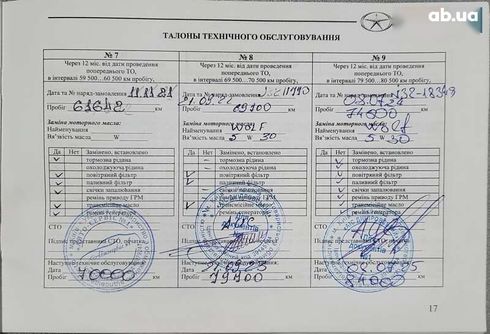 ab.ua
ТАЛОНЫ ТЕХНІЧНОГО ОБСЛУГОВУВАННЯ
№ 7
Через 12 міс. від дати проведення
попереднього ТО,
в інтервалі 59 500… 60 500 км пробігу,
Дата та № наряд-замовлення 11.11.21
Пробіг 61642 км
Заміна моторного масла:
Найменування
В'язкість масла W
Да Нет Замінено, встановлено
тормозна рідина
охолоджуюча рідина
повітряний фільтр
паливний фільтр
свічки запалювання
ремінь приводу ГРМ
трансмісійне масло
ремінь генератора
СТО
Підпис представника СТО, печатка
Наступне технічне обслуговування
Дата
Пробіг 70000 км
№ 8
Через 12 міс. від дати проведення
попереднього ТО,
в інтервалі 69 500…70 500 км пробігу,
Дата та № наряд-замовлення
Пробіг 69700 км
Заміна моторного масла:
Найменування
В'язкість масла 5 W 30
Да Нет Замінено, встановлено
тормозна рідина
охолоджуюча рідина
повітряний фільтр
паливний фільтр
свічки запалювання
ремінь приводу ГРМ
трансмісійне масло
ремінь генератора
СТО
Підпис представника СТО, печатка
Наступне технічне обслуговування
Дата
Пробіг 79700 км
№ 9
Через 12 міс. від дати проведення
попереднього ТО,
в інтервалі 79 500…80 500 км пробігу,
Дата та № наряд-замовлення
Пробіг 74000 км
Заміна моторного масла:
Найменування
В'язкість масла 5 W 30
Да Нет Замінено, встановлено
тормозна рідина
охолоджуюча рідина
повітряний фільтр
паливний фільтр
свічки запалювання
ремінь приводу ГРМ
трансмісійне масло
ремінь генератора
СТО
Підпис представника СТО, печатка
Наступне технічне обслуговування
Дата
Пробіг 84000 км
17